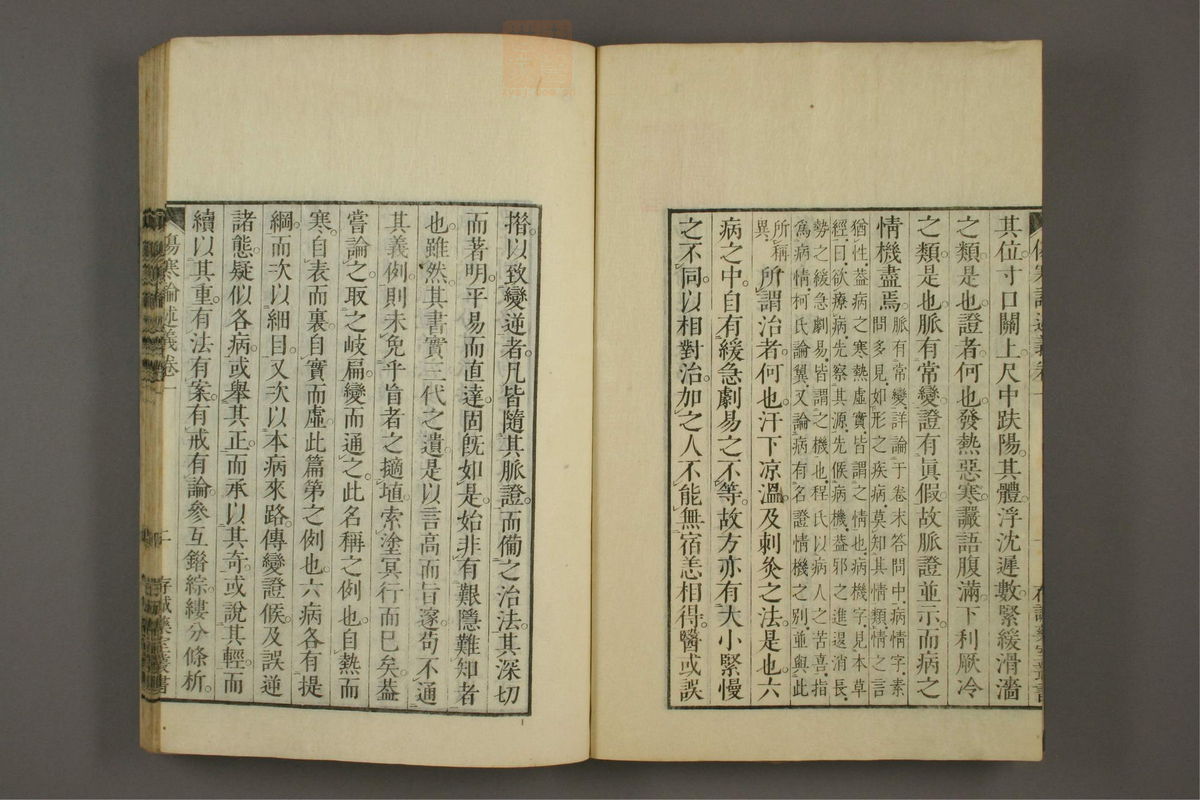 其位寸口關上尺中趺陽其體浮沈遲數緊緩滑濇
之類是也證者何也發熱惡寒讝語腹滿下利厥冷
之類是也脈有常變證有眞假故脈證並示而病之
情機盡焉脈有常變詳論于卷末答問中病情字素
問多見如形之疾病莫知其情類情之言
猶性蓋病之寒熱虛實皆謂之情也病機字見本草
經曰欲療病先察其源先候病機蓋邪之進退消長
勢之緩急劇易皆謂之機也程氏以病人之苦喜指
爲病情柯氏論翼又論病有名證情機之別並與此
所稱
異所謂治者何也汗下凉溫及刺灸之法是也六
病之中自有緩急劇易之不等故方亦有大小緊慢
之不同以相對治加之人不能無宿恙相得醫或誤
措以致變逆者凡皆隨其脈證而備之治法其深切
而著明平易而直達固既如是始非有艱隱難知者
也雖然其書實三代之遺是以言高而旨邃苟不通
其義例則未免乎盲者之擿埴索塗冥行而已矣蓋
嘗論之取之岐扁變而通之此名稱之例也自熱而
寒自表而裏自實而虛此篇第之例也六病各有提
綱而次以細目又次以本病來路傳變證候及誤逆
諸態疑似各病或舉其正而承以其奇或說其輕而
續以其重有法有案有戒有論參互錯綜縷分條析
傷寒論述義卷一
二
存誠藥室叢書